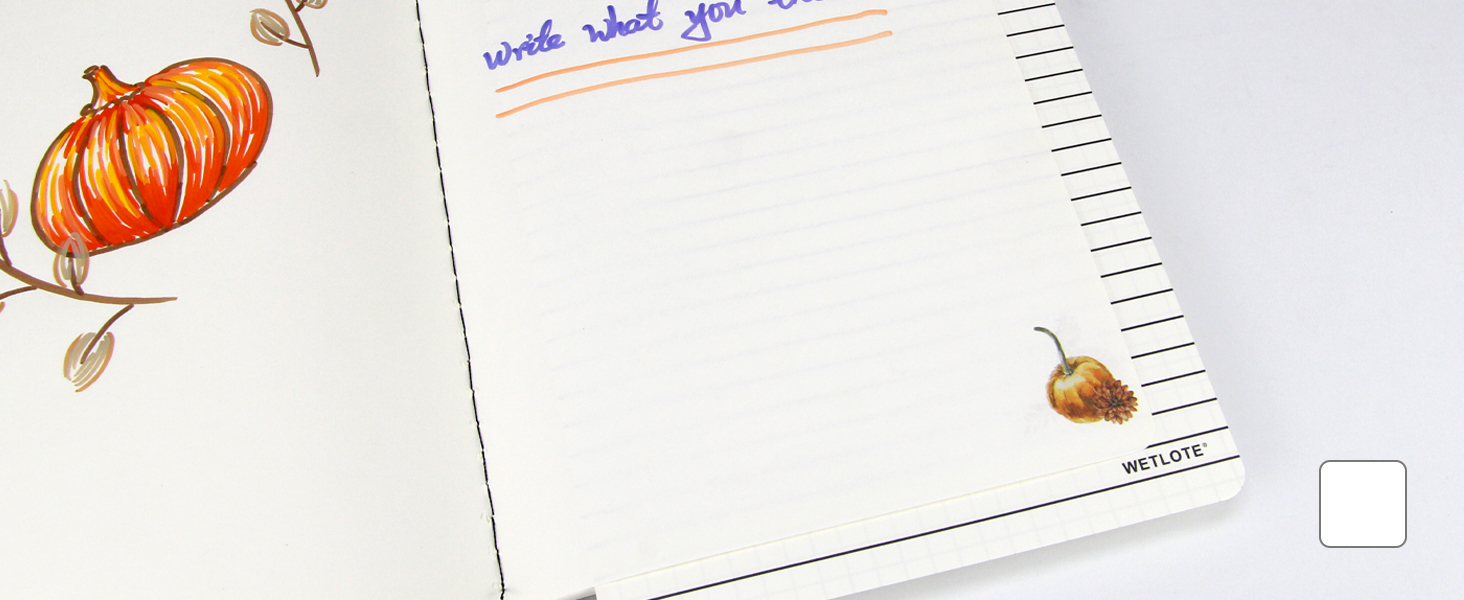 write what you
WETLOTE®